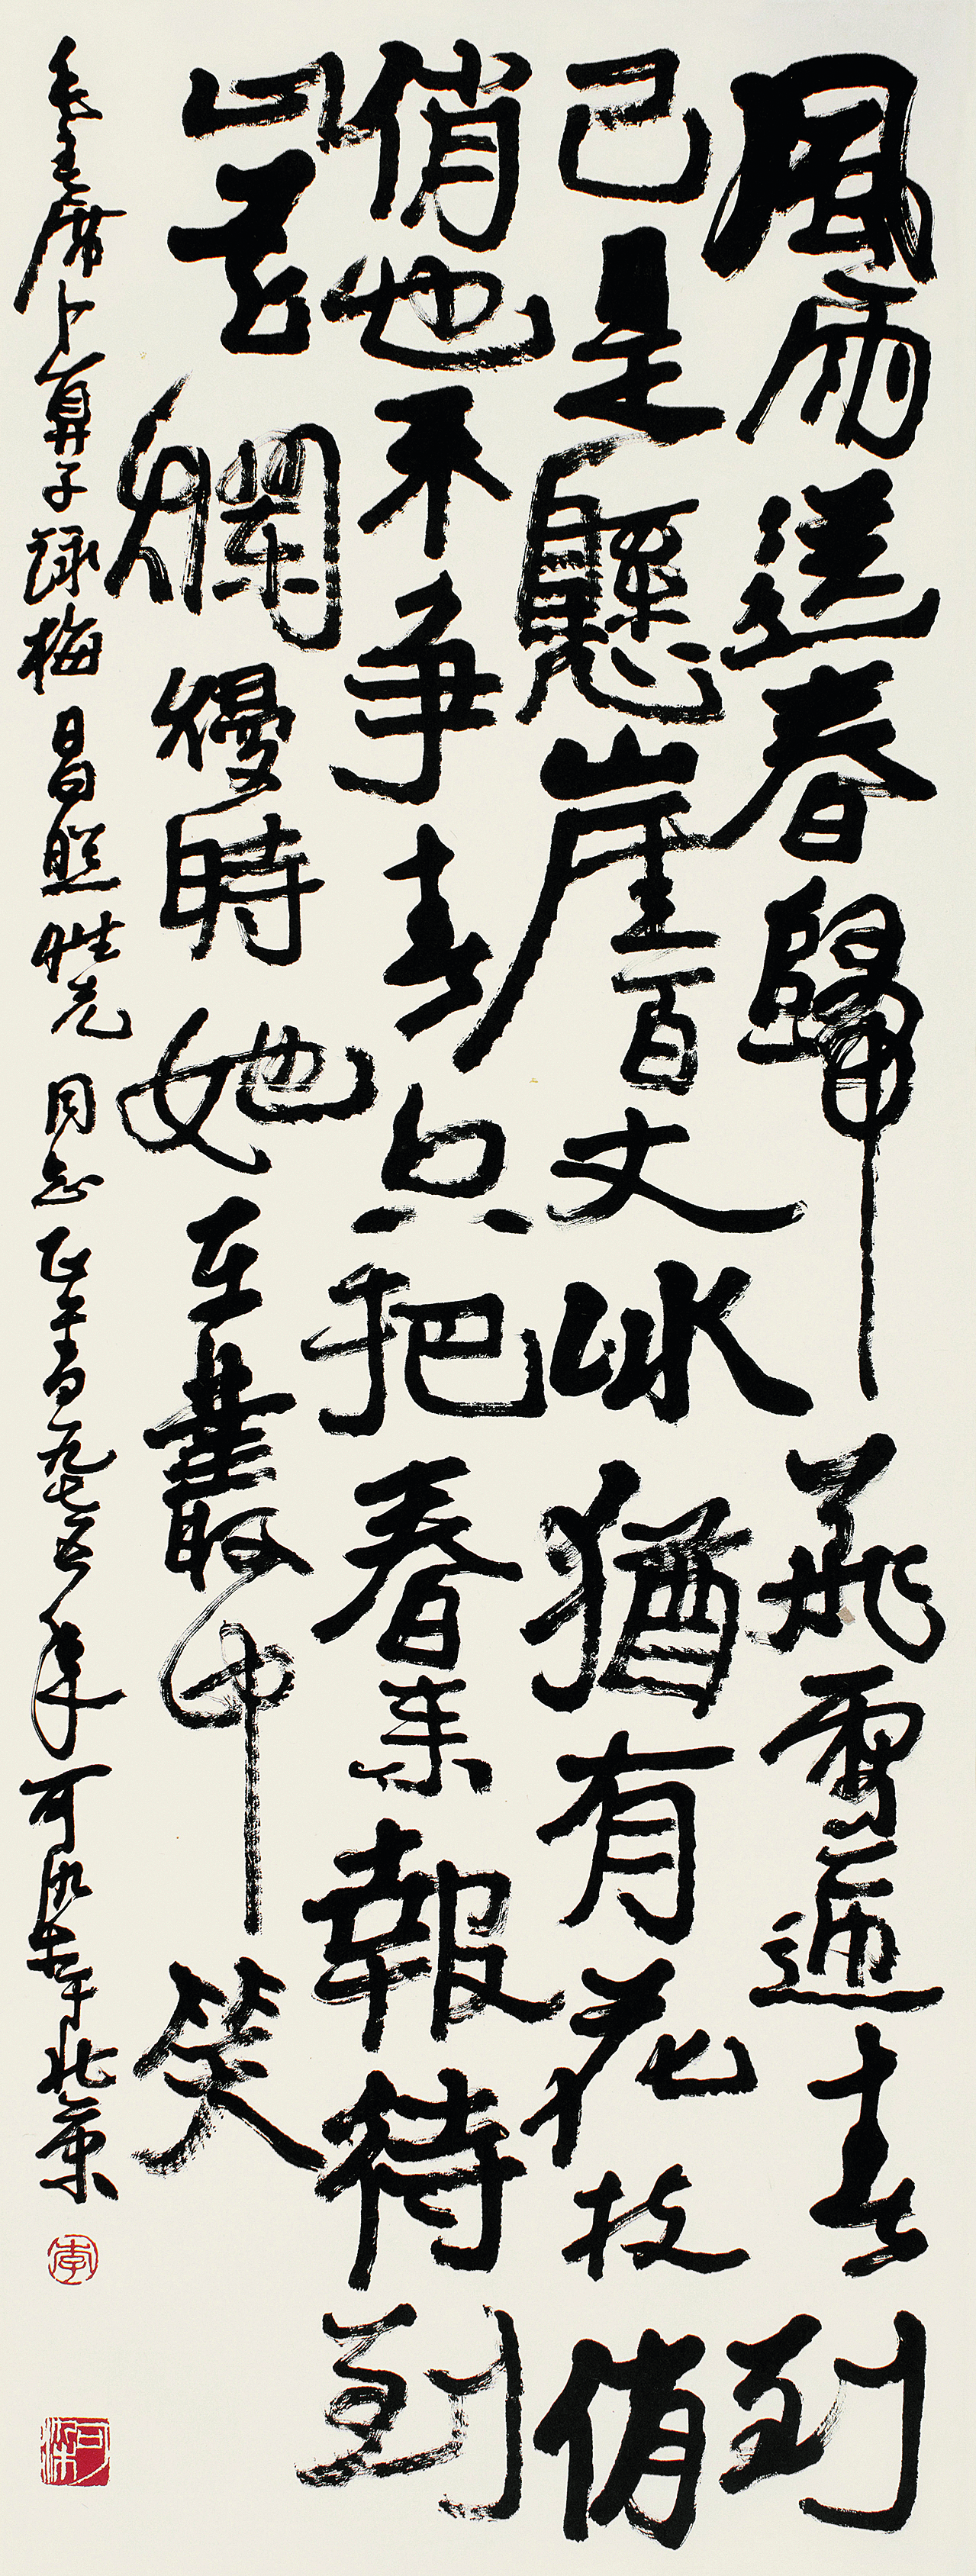 風雨送春歸飛雪迎春到
已是懸崖百丈冰猶有花枝俏
俏也不争春只把春来報待到
山花爛熳時她在叢中笑
毛主席卜算子詠梅 昌照性元同志正 一九七五年可染 北京
李
可染